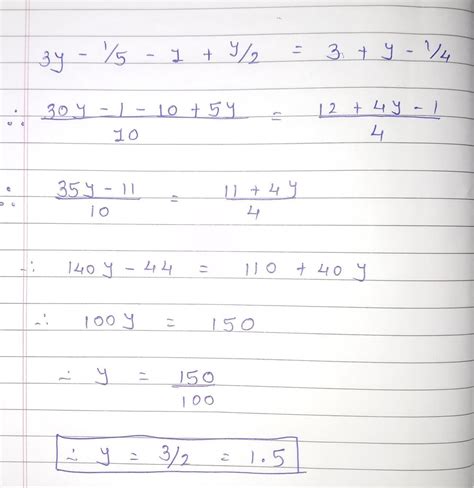 3y - 1/5 - 1 + y/2 = 3 + y - 1/4
∴ 30y - 1 - 10 + 5y / 10 = 12 + 4y - 1 / 4
∴ 35y - 11 / 10 = 11 + 4y / 4
∴ 140y - 44 = 110 + 40y
∴ 100y = 150
∴ y = 150 / 100
∴ y = 3/2 = 1.5